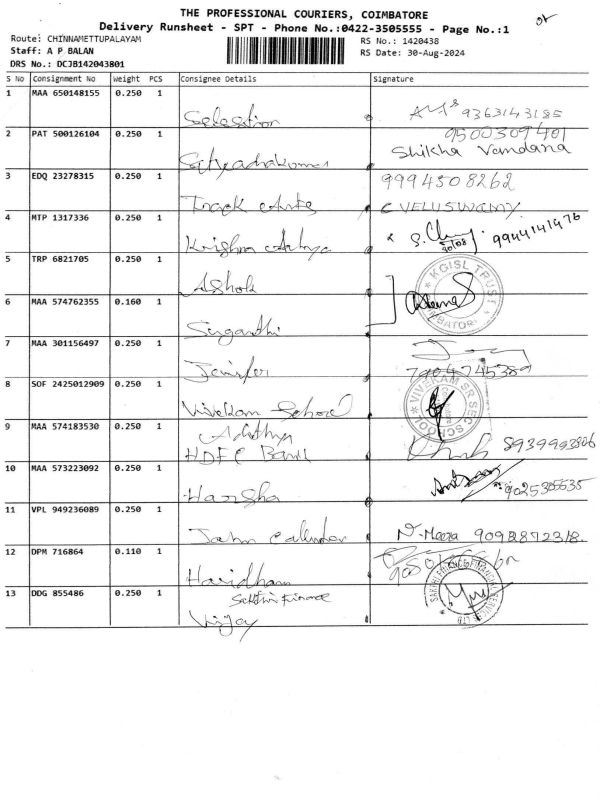 THE PROFESSIONAL COURIERS, COIMBATORE
Delivery Runsheet - SPT - Phone No.:0422-3505555 - Page No.:1
Route: CHINNAMETTUPALAYAM RS No.: 1420438
Staff: A P BALAN RS Date: 30-Aug-2024
DRS No.: DCJB142043801
S No Consignment No Weight PCS Consignee Details Signature
1 MAA 650148155 0.250 1 Selestion 9363143185
2 PAT 500126104 0.250 1 Sathyadhakumar 9500309401
Shikha Vandana
3 EDQ 23278315 0.250 1 Track Arts 9994508262
C VELUSWAMY
4 MTP 1317336 0.250 1 Krishna 30/08 9944141476
5 TRP 6821705 0.250 1 Ashok KGISL TRUST
6 MAA 574762355 0.160 1 Suganthi
7 MAA 301156497 0.250 1 Jenifer 7904745389
8 SOF 2425012909 0.250 1 Vivekam School VIVEKAM SR SEC SCHOOL
9 MAA 574183530 0.250 1 Adithya
HDFC Bank 8939993806
10 MAA 573223092 0.250 1 Harsha 9025305535
11 VPL 949236089 0.250 1 John N. Meera
12 DPM 716864 0.110 1 Haridham
13 DDG 855486 0.250 1 Sakthi Finance
Vijay